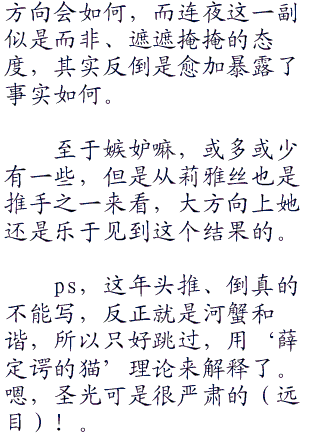 方向会如何，而连夜这一副
似是而非、遮遮掩掩的态
度，其实反倒是愈加暴露了
事实如何。
至于嫉妒嘛，或多或少
有一些，但是从莉雅丝也是
推手之一来看，大方向上她
还是乐于见到这个结果的。
ps，这年头推、倒真的
不能写，反正就是河蟹和
谐，所以只好跳过，用‘薛
定谔的猫’理论来解释了。
嗯，圣光可是很严肃的（远
目）！。